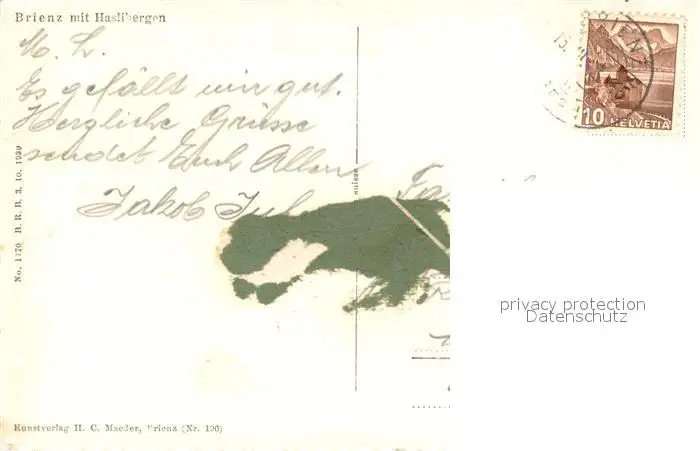 Brienz mit Haslibergen
M. L.
Es gefällt mir gut.
Herzliche Grüsse
sendet Euch Allen
Jakob
No. 1770 B. R. B. 3. 10. 1939
10 HELVETIA
privacy protection
Datenschutz
Kunstverlag H. C. Maeder, Brienz (Nr. 196)